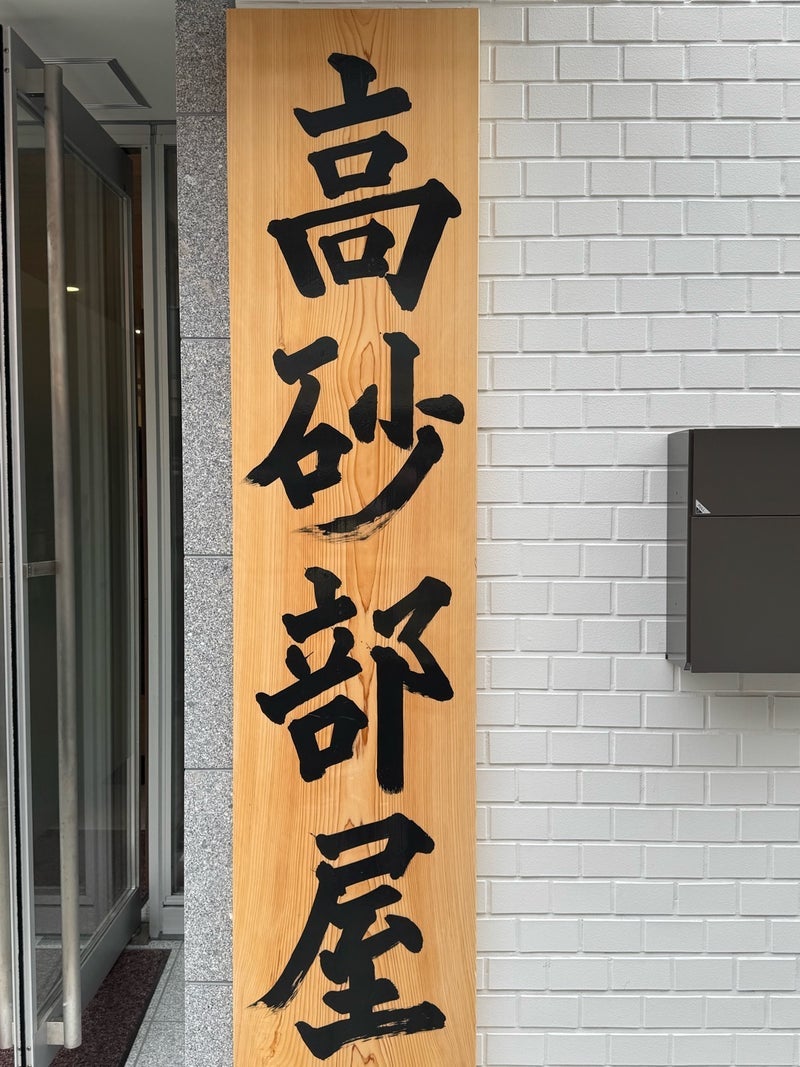 高砂部屋